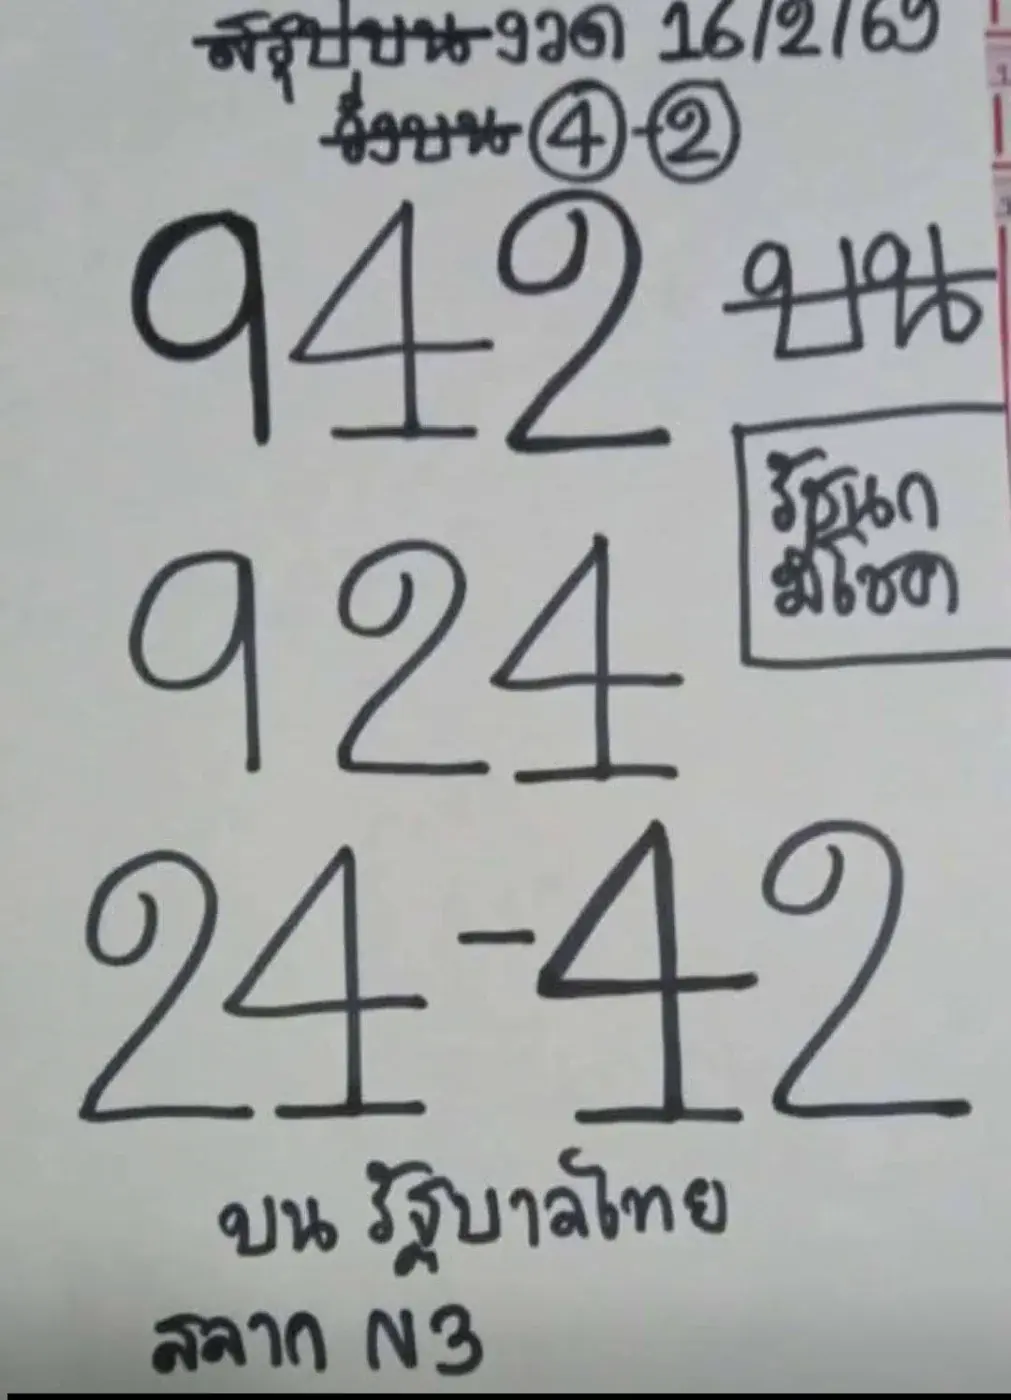 สรุปบนงวด 16/2/69
วิ่งบน 4-2
942 บน
รัชนก
มีโชค
924
24-42
บน รัฐบาลไทย
สลาก N3